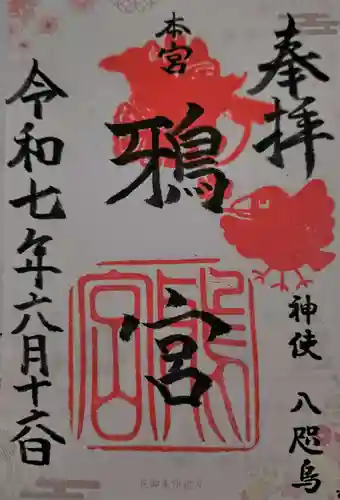 奉拝
神使 八咫烏
本宮
鴉宮
令和七年六月十六日